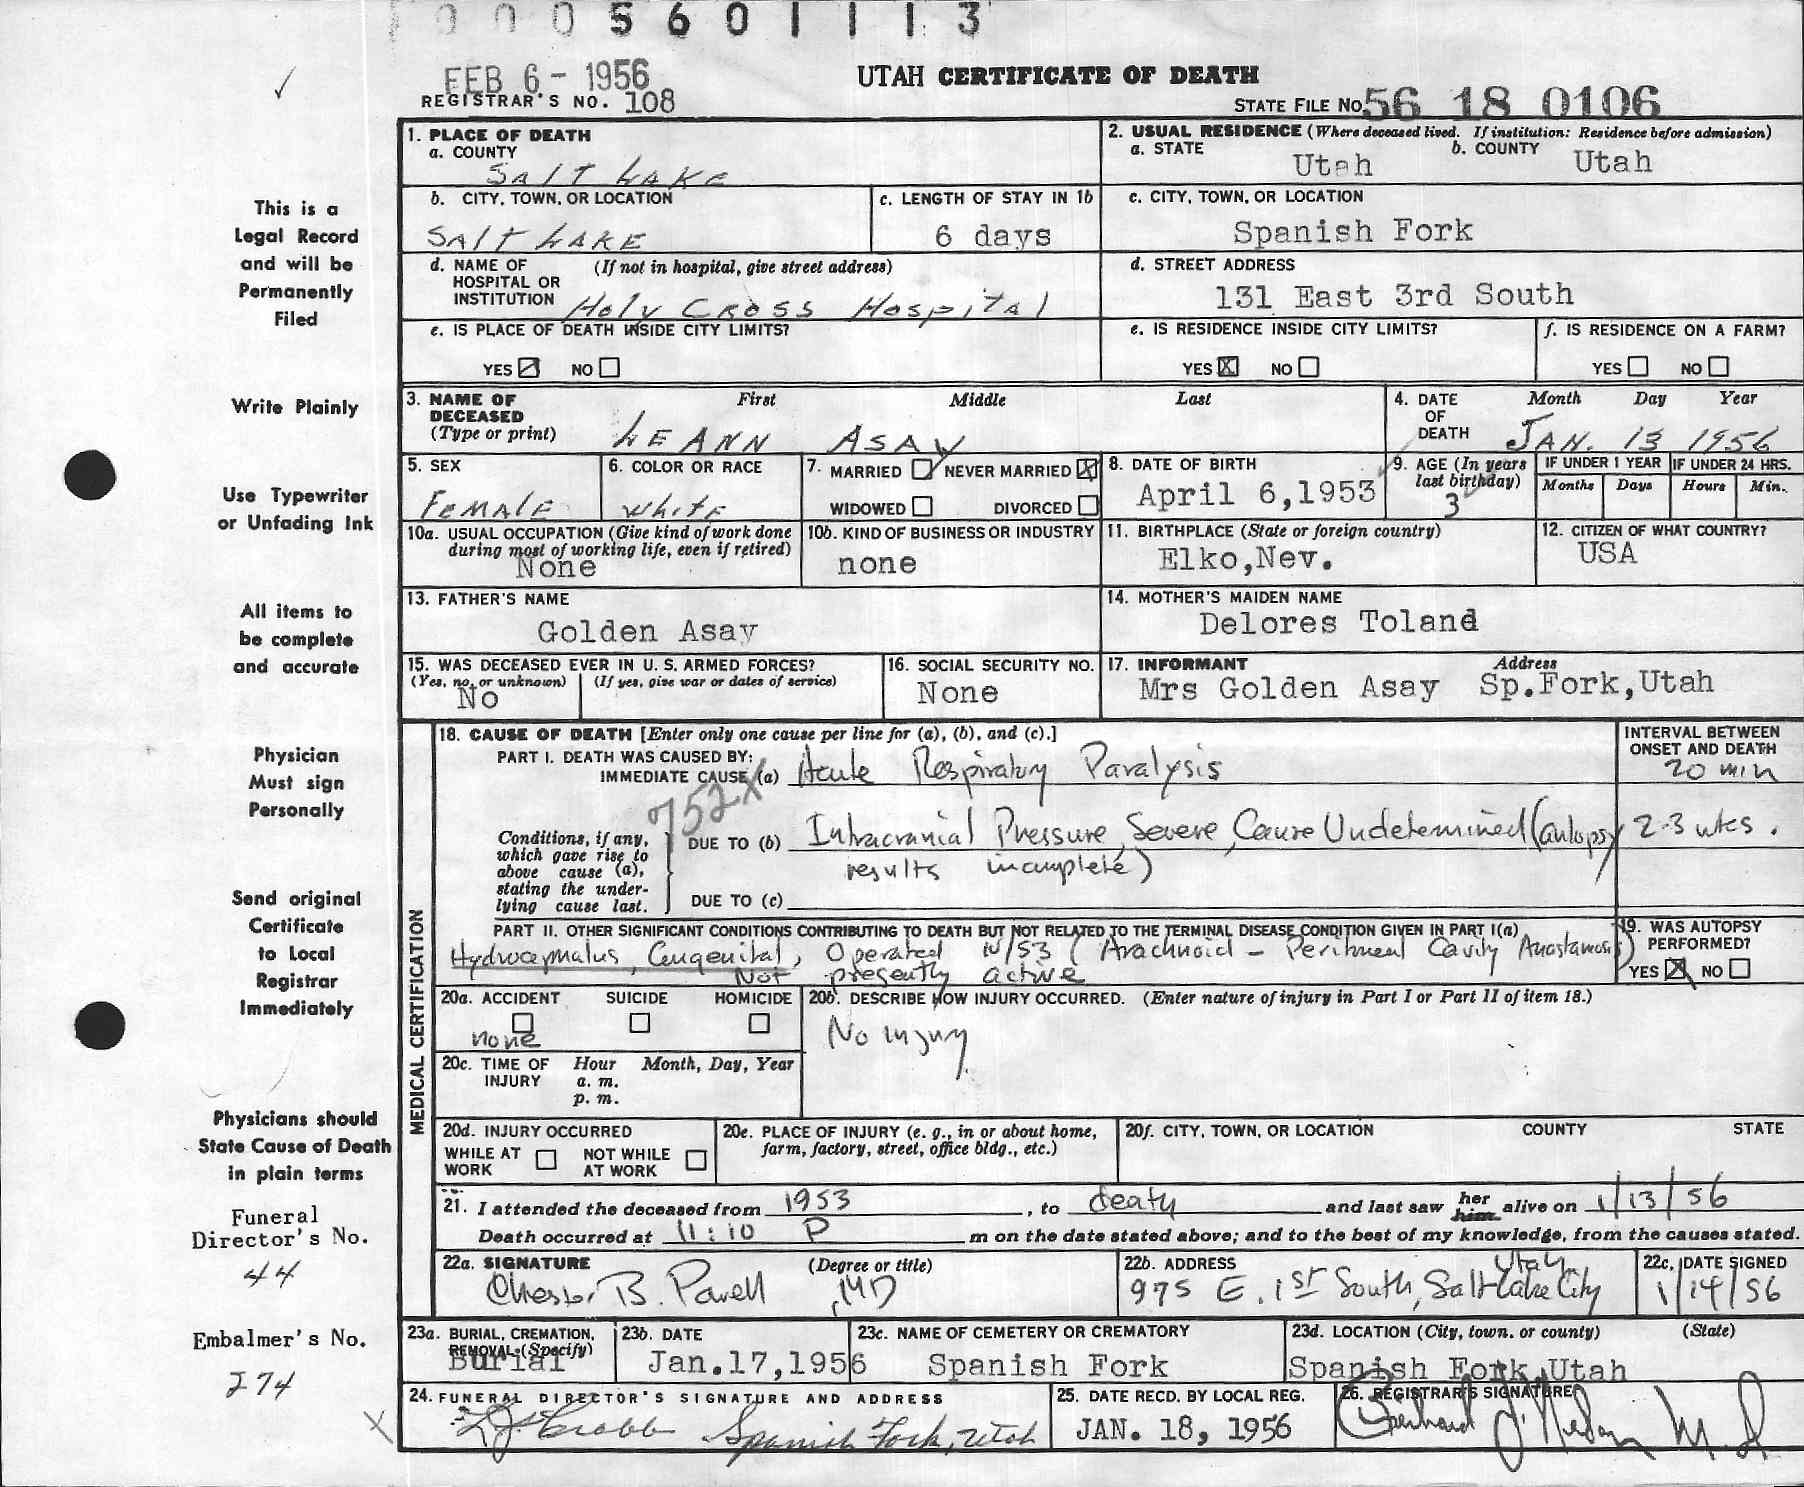 0005601113
FEB 6 - 1956
UTAH CERTIFICATE OF DEATH
REGISTRAR'S NO. 108
STATE FILE No 56 18 0106
1. PLACE OF DEATH
a. COUNTY
SALT LAKE
2. USUAL RESIDENCE (Where deceased lived. If institution: Residence before admission)
a. STATE Utah b. COUNTY Utah
b. CITY, TOWN, OR LOCATION
SALT LAKE
c. LENGTH OF STAY IN 1b
6 days
c. CITY, TOWN, OR LOCATION
Spanish Fork
d. NAME OF HOSPITAL OR INSTITUTION (If not in hospital, give street address)
Holy CROSS Hospital
d. STREET ADDRESS
131 East 3rd South
e. IS PLACE OF DEATH INSIDE CITY LIMITS?
YES NO
e. IS RESIDENCE INSIDE CITY LIMITS?
YES X NO
f. IS RESIDENCE ON A FARM?
YES NO
3. NAME OF DECEASED (Type or print)
First Middle Last
LE ANN ASAY
4. DATE OF DEATH Month Day Year
JAN. 13 1956
5. SEX
FEMALE
6. COLOR OR RACE
White
7. MARRIED NEVER MARRIED X
WIDOWED DIVORCED
8. DATE OF BIRTH
April 6,1953
9. AGE (In years last birthday)
3
IF UNDER 1 YEAR
Months Days
IF UNDER 24 HRS.
Hours Min.
10a. USUAL OCCUPATION (Give kind of work done during most of working life, even if retired)
None
10b. KIND OF BUSINESS OR INDUSTRY
none
11. BIRTHPLACE (State or foreign country)
Elko,Nev.
12. CITIZEN OF WHAT COUNTRY?
USA
13. FATHER'S NAME
Golden Asay
14. MOTHER'S MAIDEN NAME
Delores Toland
15. WAS DECEASED EVER IN U. S. ARMED FORCES?
(Yes, no, or unknown) (If yes, give war or dates of service)
No
16. SOCIAL SECURITY NO.
None
17. INFORMANT Address
Mrs Golden Asay Sp.Fork,Utah
MEDICAL CERTIFICATION
18. CAUSE OF DEATH [Enter only one cause per line for (a), (b), and (c).]
PART I. DEATH WAS CAUSED BY:
IMMEDIATE CAUSE (a) Acute Respiratory Paralysis
INTERVAL BETWEEN ONSET AND DEATH
20 min
752X
Conditions, if any, which gave rise to above cause (a), stating the underlying cause last.
DUE TO (b) Intracranial Pressure, Severe, Cause Undetermined (autopsy results incomplete)
2-3 wks.
DUE TO (c)
PART II. OTHER SIGNIFICANT CONDITIONS CONTRIBUTING TO DEATH BUT NOT RELATED TO THE TERMINAL DISEASE CONDITION GIVEN IN PART I(a)
Hydrocephalus, Congenital, Operated (Arachnoid - Peritoneal Cavity Anastamosis)
Not presently active
19. WAS AUTOPSY PERFORMED?
YES X NO
20a. ACCIDENT SUICIDE HOMICIDE
none
20b. DESCRIBE HOW INJURY OCCURRED. (Enter nature of injury in Part I or Part II of item 18.)
No injury
20c. TIME OF INJURY Hour Month, Day, Year
a. m.
p. m.
20d. INJURY OCCURRED
WHILE AT WORK NOT WHILE AT WORK
20e. PLACE OF INJURY (e. g., in or about home, farm, factory, street, office bldg., etc.)
20f. CITY, TOWN, OR LOCATION COUNTY STATE
21. I attended the deceased from 1953, to death and last saw her him alive on 1/13/56
Death occurred at 11:10 P m on the date stated above; and to the best of my knowledge, from the causes stated.
22a. SIGNATURE (Degree or title)
Chester B. Powell, MD
22b. ADDRESS
975 E. 1st South, Salt Lake City Utah
22c. DATE SIGNED
1/14/56
23a. BURIAL, CREMATION, REMOVAL (Specify)
Burial
23b. DATE
Jan.17,1956
23c. NAME OF CEMETERY OR CREMATORY
Spanish Fork
23d. LOCATION (City, town, or county) (State)
Spanish Fork,Utah
24. FUNERAL DIRECTOR'S SIGNATURE AND ADDRESS
Spanish Fork, Utah
25. DATE RECD. BY LOCAL REG.
JAN. 18, 1956
26. REGISTRAR'S SIGNATURE
This is a
Legal Record
and will be
Permanently
Filed
Write Plainly
Use Typewriter
or Unfading Ink
All items to
be complete
and accurate
Physician
Must sign
Personally
Send original
Certificate
to Local
Registrar
Immediately
Physicians should
State Cause of Death
in plain terms
Funeral
Director's No.
44
Embalmer's No.
274